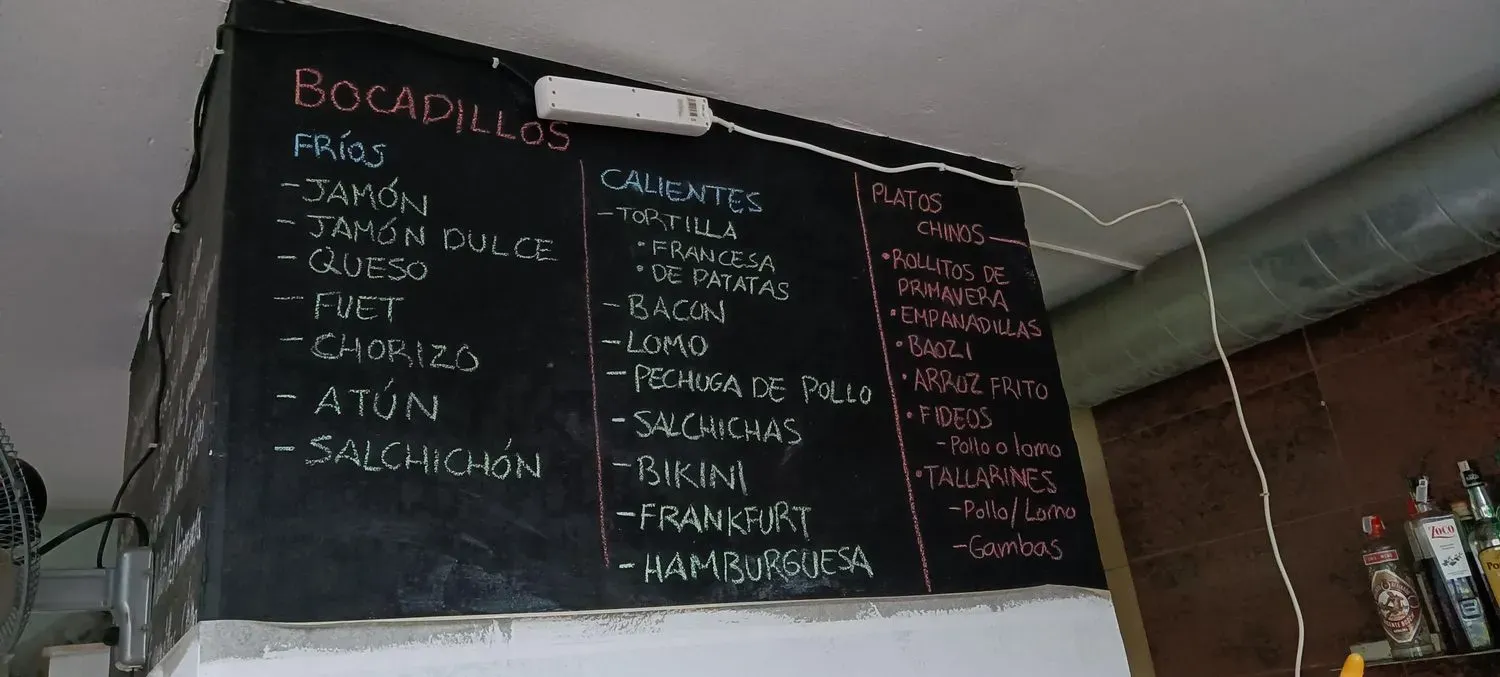 BOCADILLOS
FRÍOS
- JAMÓN
- JAMÓN DULCE
- QUESO
- FUET
- CHORIZO
- ATÚN
- SALCHICHÓN
CALIENTES
- TORTILLA
• FRANCESA
• DE PATATAS
- BACON
- LOMO
- PECHUGA DE POLLO
- SALCHICHAS
- BIKINI
- FRANKFURT
- HAMBURGUESA
PLATOS
CHINOS
• ROLLITOS DE
PRIMAVERA
• EMPANADILLAS
• BAOZI
• ARROZ FRITO
• FIDEOS
- Pollo o lomo
• TALLARINES
- Pollo/Lomo
- Gambas
ZOCO